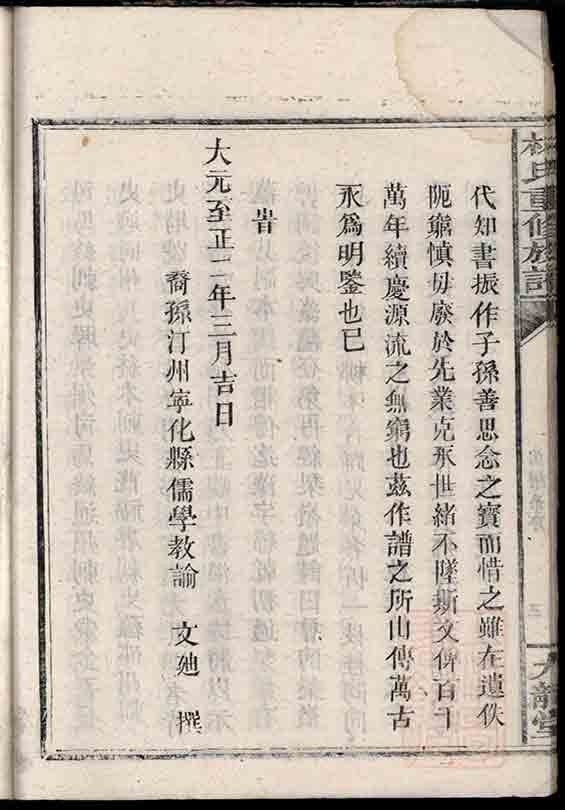 林氏重修族譜
代知書振作子孫善思念之寶而惜之雖在遺佚
阨窮慎毋廢於先業克承世緒不墜斯文俾百千
萬年續慶源流之無窮也茲作譜之所由傳萬古
永為明鑒也已
旹
大元至正二年三月吉日
裔孫汀州寧化縣儒學教諭 文廸 撰
九龍堂